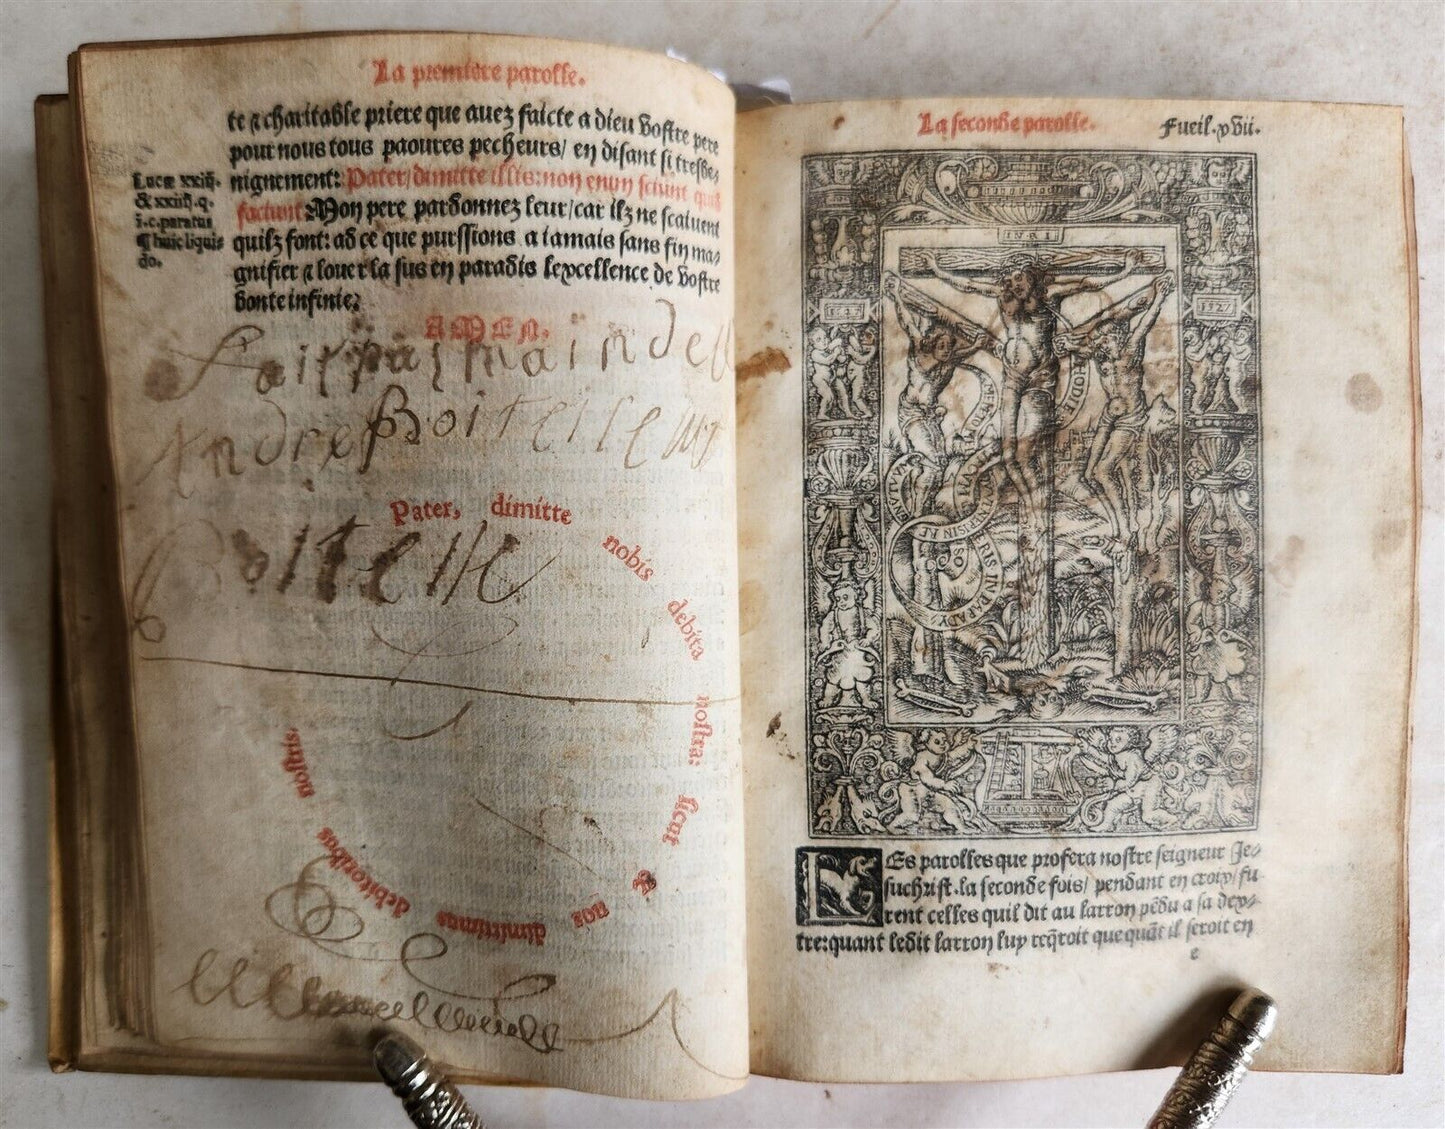 La premiere parolle.
te & charitable priere que auez faicte a dieu vostre pere
pour nous tous paoures pecheurs/ en disant si tresbe-
nignement: Pater/ dimitte illis: non enim sciunt quid
faciunt. Mon pere pardonnez leur/ car ilz ne scaiuent
quilz font: ad ce que puissions a iamais sans fin ma-
gnifier & louer la sus en paradis lexcellence de vostre
bonte infinie:
AMEN.
Lucæ xxiij.
& xxiiij. q.
i. c. paratus
¶ huic liquis
do.
Andre Boitelle
Boitelle
Pater, dimitte nobis debita nostra: sicut & nos dimittimus debitoribus nostris.
La seconde parolle.
Fueil. xvii.
INRI
1527
HODIE
MECVM
ERIS IN PARADYSO
LEs parolles que profera nostre seigneur Je-
suchrist. la seconde fois/ pendant en croix/ fu-
rent celles quil dit au larron pẽdu a sa dex-
tre: quant ledit larron luy reqͥroit que quãt il seroit en
e